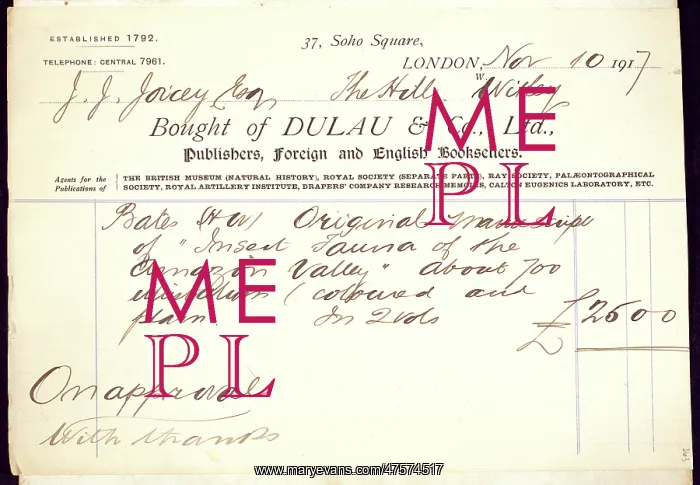 ESTABLISHED 1792.
37, Soho Square,
TELEPHONE: CENTRAL 7961.
LONDON, Nov 10 1917
J. J. Joicey Esq The Hill Witley
Bought of DULAU & Co., Ltd.,
Publishers, Foreign and English Booksellers.
Agents for the Publications of
THE BRITISH MUSEUM (NATURAL HISTORY), ROYAL SOCIETY (SEPARATE PARTS), RAY SOCIETY, PALÆONTOGRAPHICAL
SOCIETY, ROYAL ARTILLERY INSTITUTE, DRAPERS' COMPANY RESEARCH MEMOIRS, CALTON EUGENICS LABORATORY, ETC.
Bates H W) Original manuscript
of "Insect Fauna of the
Amazon Valley" about 700
illustrations (coloured and
plain In 2 vols £ 26 0 0
On approval
With thanks
ME
PL
ME
PL
www.maryevans.com/47574517